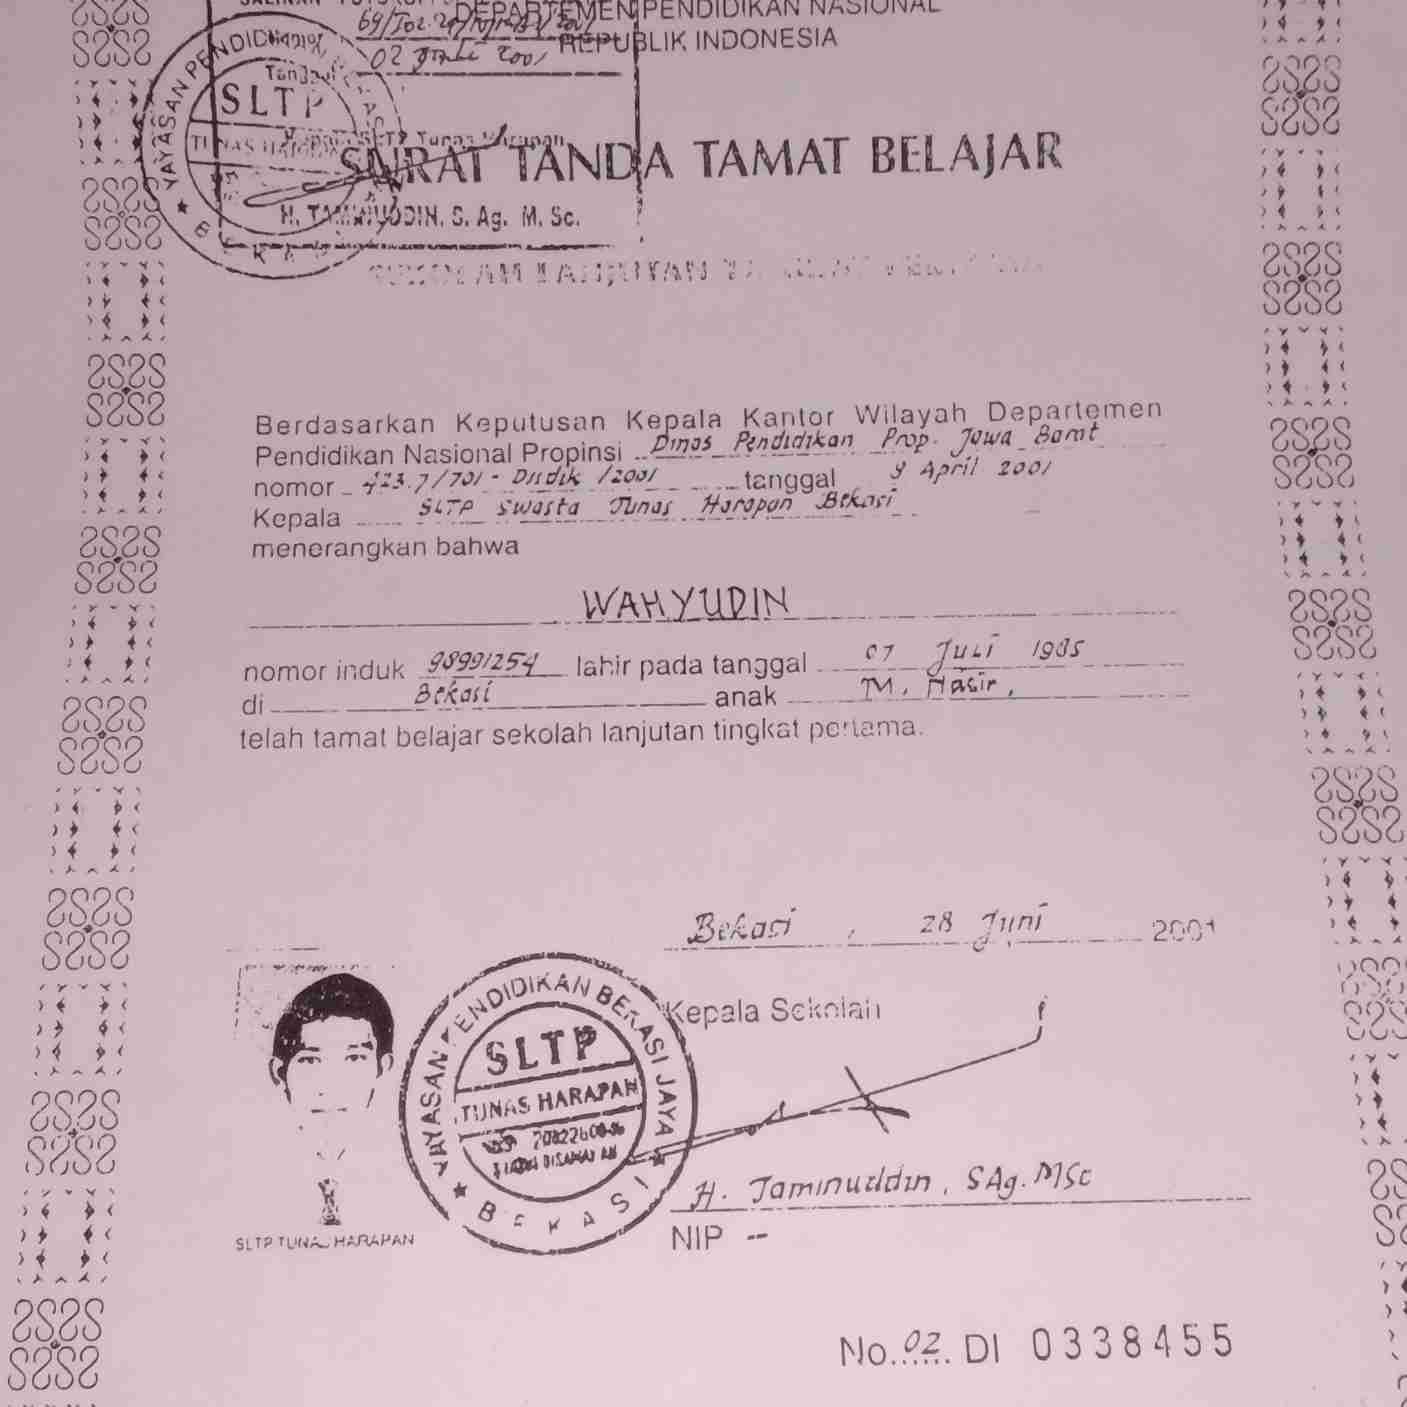 DEPARTEMEN PENDIDIKAN NASIONAL
REPUBLIK INDONESIA
02 2001
Tanggal
YAYASAN PENDIDIKAN
SLTP
TUNAS HARAPAN
BEKASI
Kepala SLTP Tunas Harapan
H. TAMINUDDIN. S. Ag. M. Sc.
SURAT TANDA TAMAT BELAJAR
SEKOLAH LANJUTAN TINGKAT PERTAMA
Berdasarkan Keputusan Kepala Kantor Wilayah Departemen
Pendidikan Nasional Propinsi Dinas Pendidikan Prop. Jawa Barat
nomor 423.7/701 - Disdik /2001 tanggal 9 April 2001
Kepala SLTP Swasta Tunas Harapan Bekasi
menerangkan bahwa
WAHYUDIN
nomor induk 98991254 lahir pada tanggal 07 Juli 1985
di Bekasi anak M. Nasir.
telah tamat belajar sekolah lanjutan tingkat pertama.
Bekasi , 28 Juni 2001
Kepala Sekolah
YAYASAN PENDIDIKAN BEKASI JAYA
SLTP
TUNAS HARAPAN
BEKASI
H. Taminuddin, SAg. MSc
NIP --
SLTP TUNAS HARAPAN
No. 02 DI 0338455